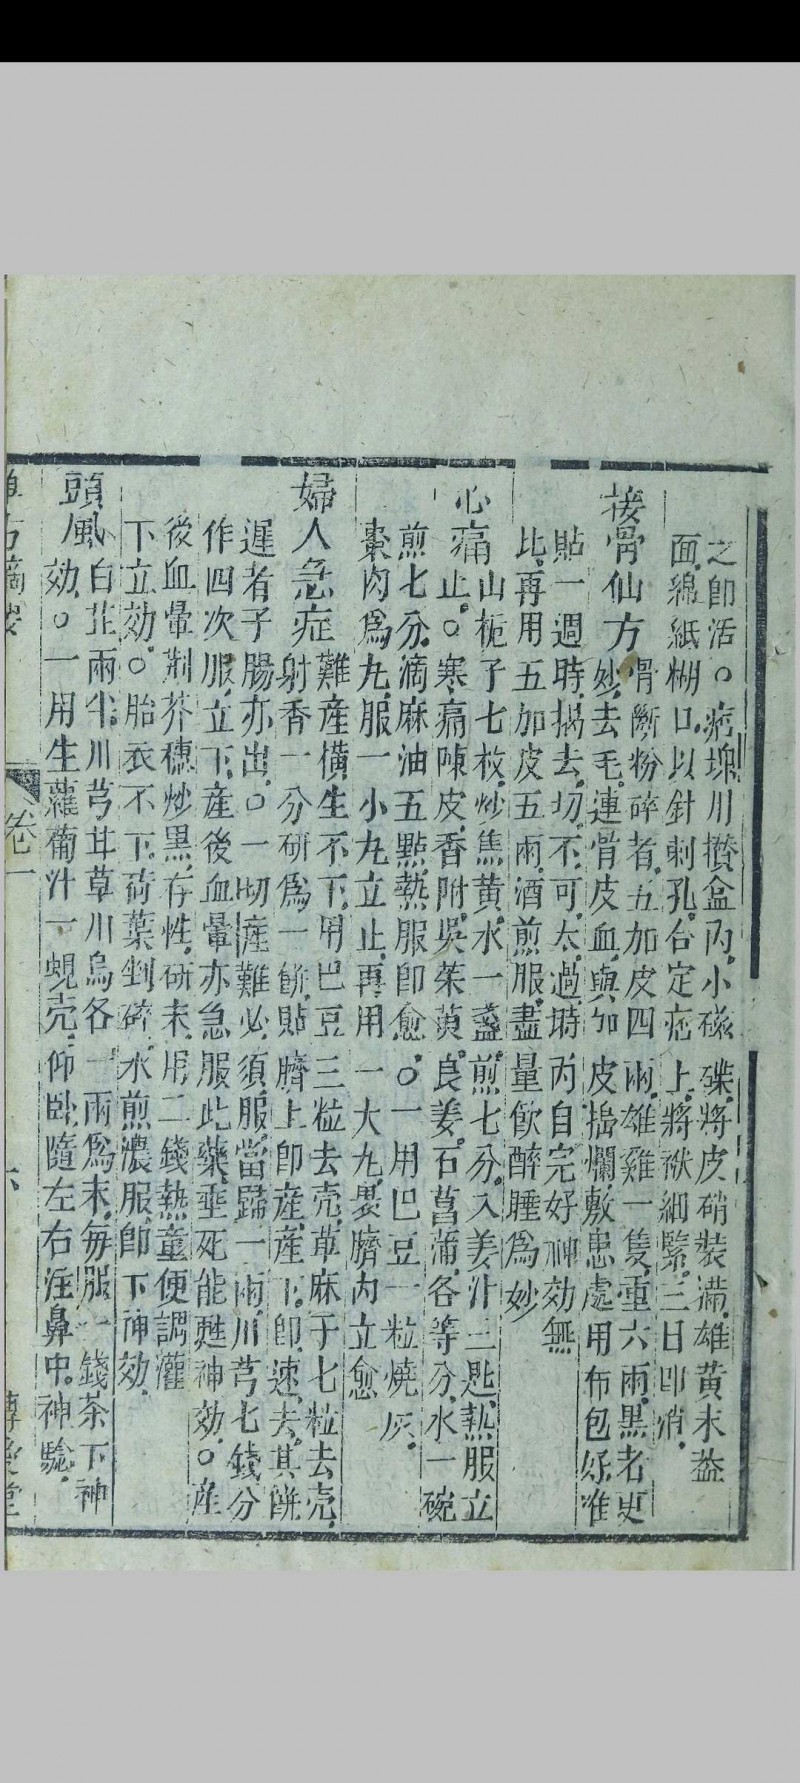 之卽活○痞塊川攢盒內小磁碟將皮硝裝滿雄黃末葢
面綿紙糊口以針刺孔合定痞上將袱細緊三日卽消
接骨仙方骨斷粉碎者五加皮四兩雄雞一隻重六兩黑者更
妙去毛連骨皮血與加皮搗爛敷患處用布包好准
貼一週時揭去切不可太過時內自完好神効無
比再用五加皮五兩酒煎服盡量飮醉睡爲妙
心痛山梔子七枚炒焦黃水一盞煎七分入姜汁三匙熱服立
止○寒痛陳皮香附吳茱萸良姜石菖蒲各等分水一碗
煎七分滴麻油五點熱服卽愈○一用巴豆一粒燒灰
棗肉爲丸服一小丸立止再用一大丸畏臍內立愈
婦人急症難產橫生不下用巴豆三粒去壳草麻子七粒去壳
射香一分研爲一餅貼臍上卽產產下卽速去其餅
遲者子腸亦出○一切產難必須服當歸一兩川芎七錢分
作四次服立下產後血暈亦急服此藥垂死能甦神効○產
後血暈荆芥穗炒黑存性研末用二錢熱童便調灌
下立効○胎衣不下荷葉剉碎水煎濃服卽下神効
頭風白芷兩半川芎甘草川烏各一兩爲末每服一錢茶下神
効○一用生蘿蔔汁一蜆壳仰臥隨左右注鼻中神驗
卷一
六